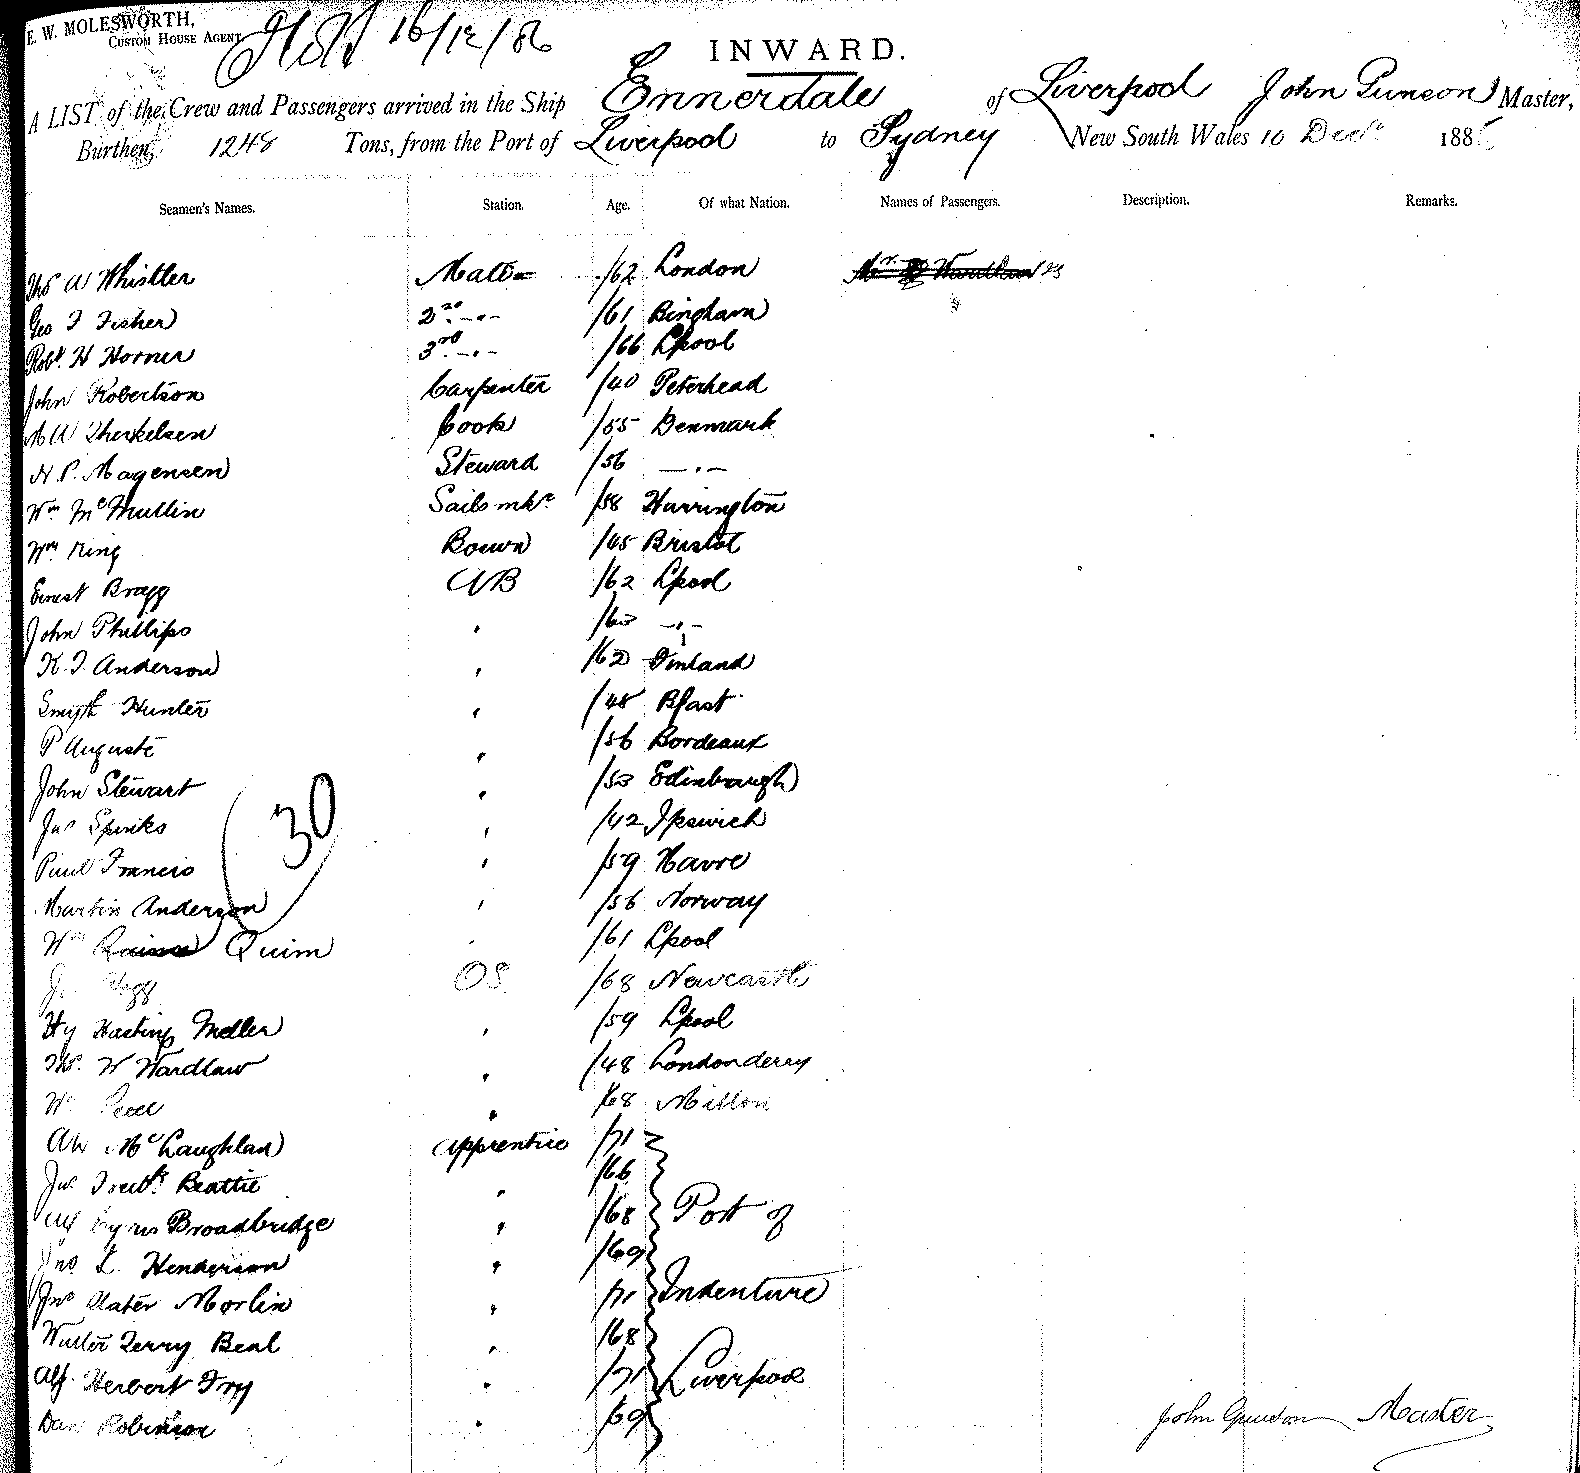 E. W. MOLESWORTH,
CUSTOM HOUSE AGENT
16/12/86
INWARD.
A LIST of the Crew and Passengers arrived in the Ship Ennerdale of Liverpool John Gunson Master,
Burthen, 1248 Tons, from the Port of Liverpool to Sydney New South Wales 10 Decr 188
Seamen's Names. Station. Age. Of what Nation. Names of Passengers. Description. Remarks.
Thos W Whistler Mate /62 London
Geo F Fisher 2nd -"- /61 Bingham
Robt. H Horner 3rd -"- /66 Lpool
John Robertson Carpenter /40 Peterhead
A W Therkelsen Cook /55 Denmark
N. P. Magensen Steward /56 -"-
Wm McMullin Sailsmkr /58 Harrington
Wm King Bosun /45 Bristol
Ernest Bragg AB /62 Lpool
John Phillips " /60 -"-
K. J. Anderson " /62 Finland
Smyth Hunter " /48 Bfast
P Auguste " /56 Bordeaux
John Stewart " /53 Edinbrough
Jas Spinks " /42 Ipswich
Paul Francis " /59 Havre
Martin Anderson " /56 Norway
30
Wm Quirm " /61 Lpool
OS /68 Newcastle
Hy Hasting Meller " /59 Lpool
Thos. W Wardlaw " /48 Londonderry
Wm Peel " /68 Millon
Aw McLaughlan Apprentice /71
Jas Fredk. Beattie " /66
Broadbridge " /68 Port of
Jno L. Henderson " /69
Jno Slater Morlin " /71 Indenture
Walter Terry Beal " /68
Alf. Herbert Fry " /71 Liverpool
Dan Robinson " /69
John Gunson Master